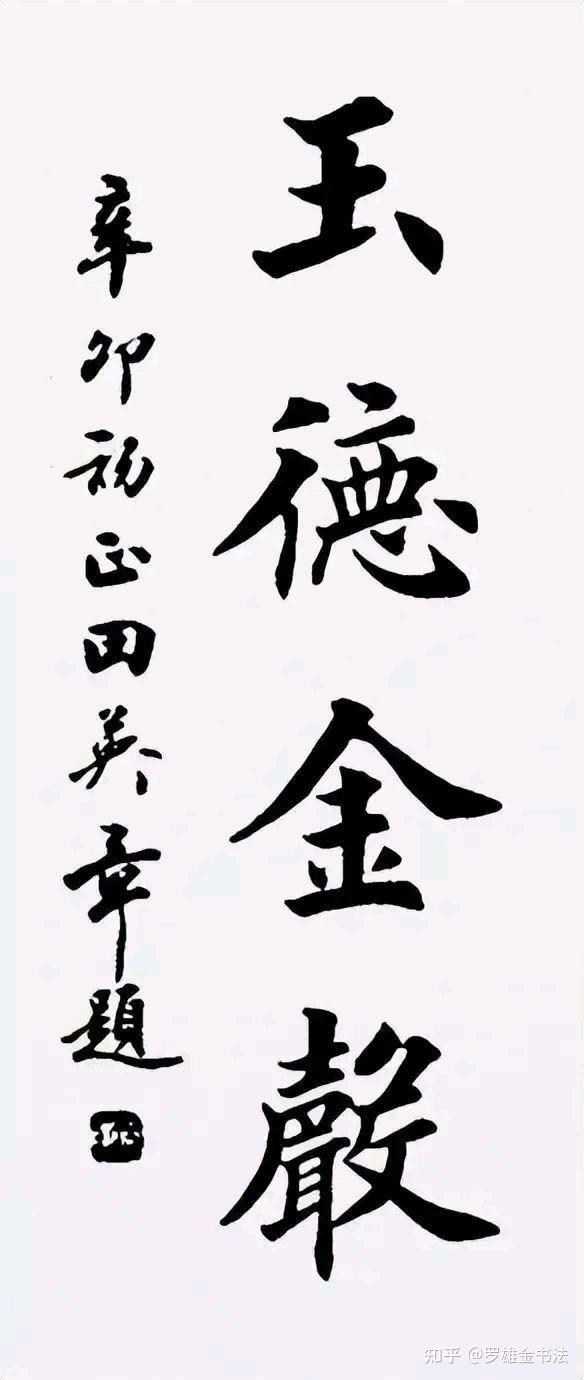 玉德金聲
辛卯初正田英章題
知乎 @罗雄金书法